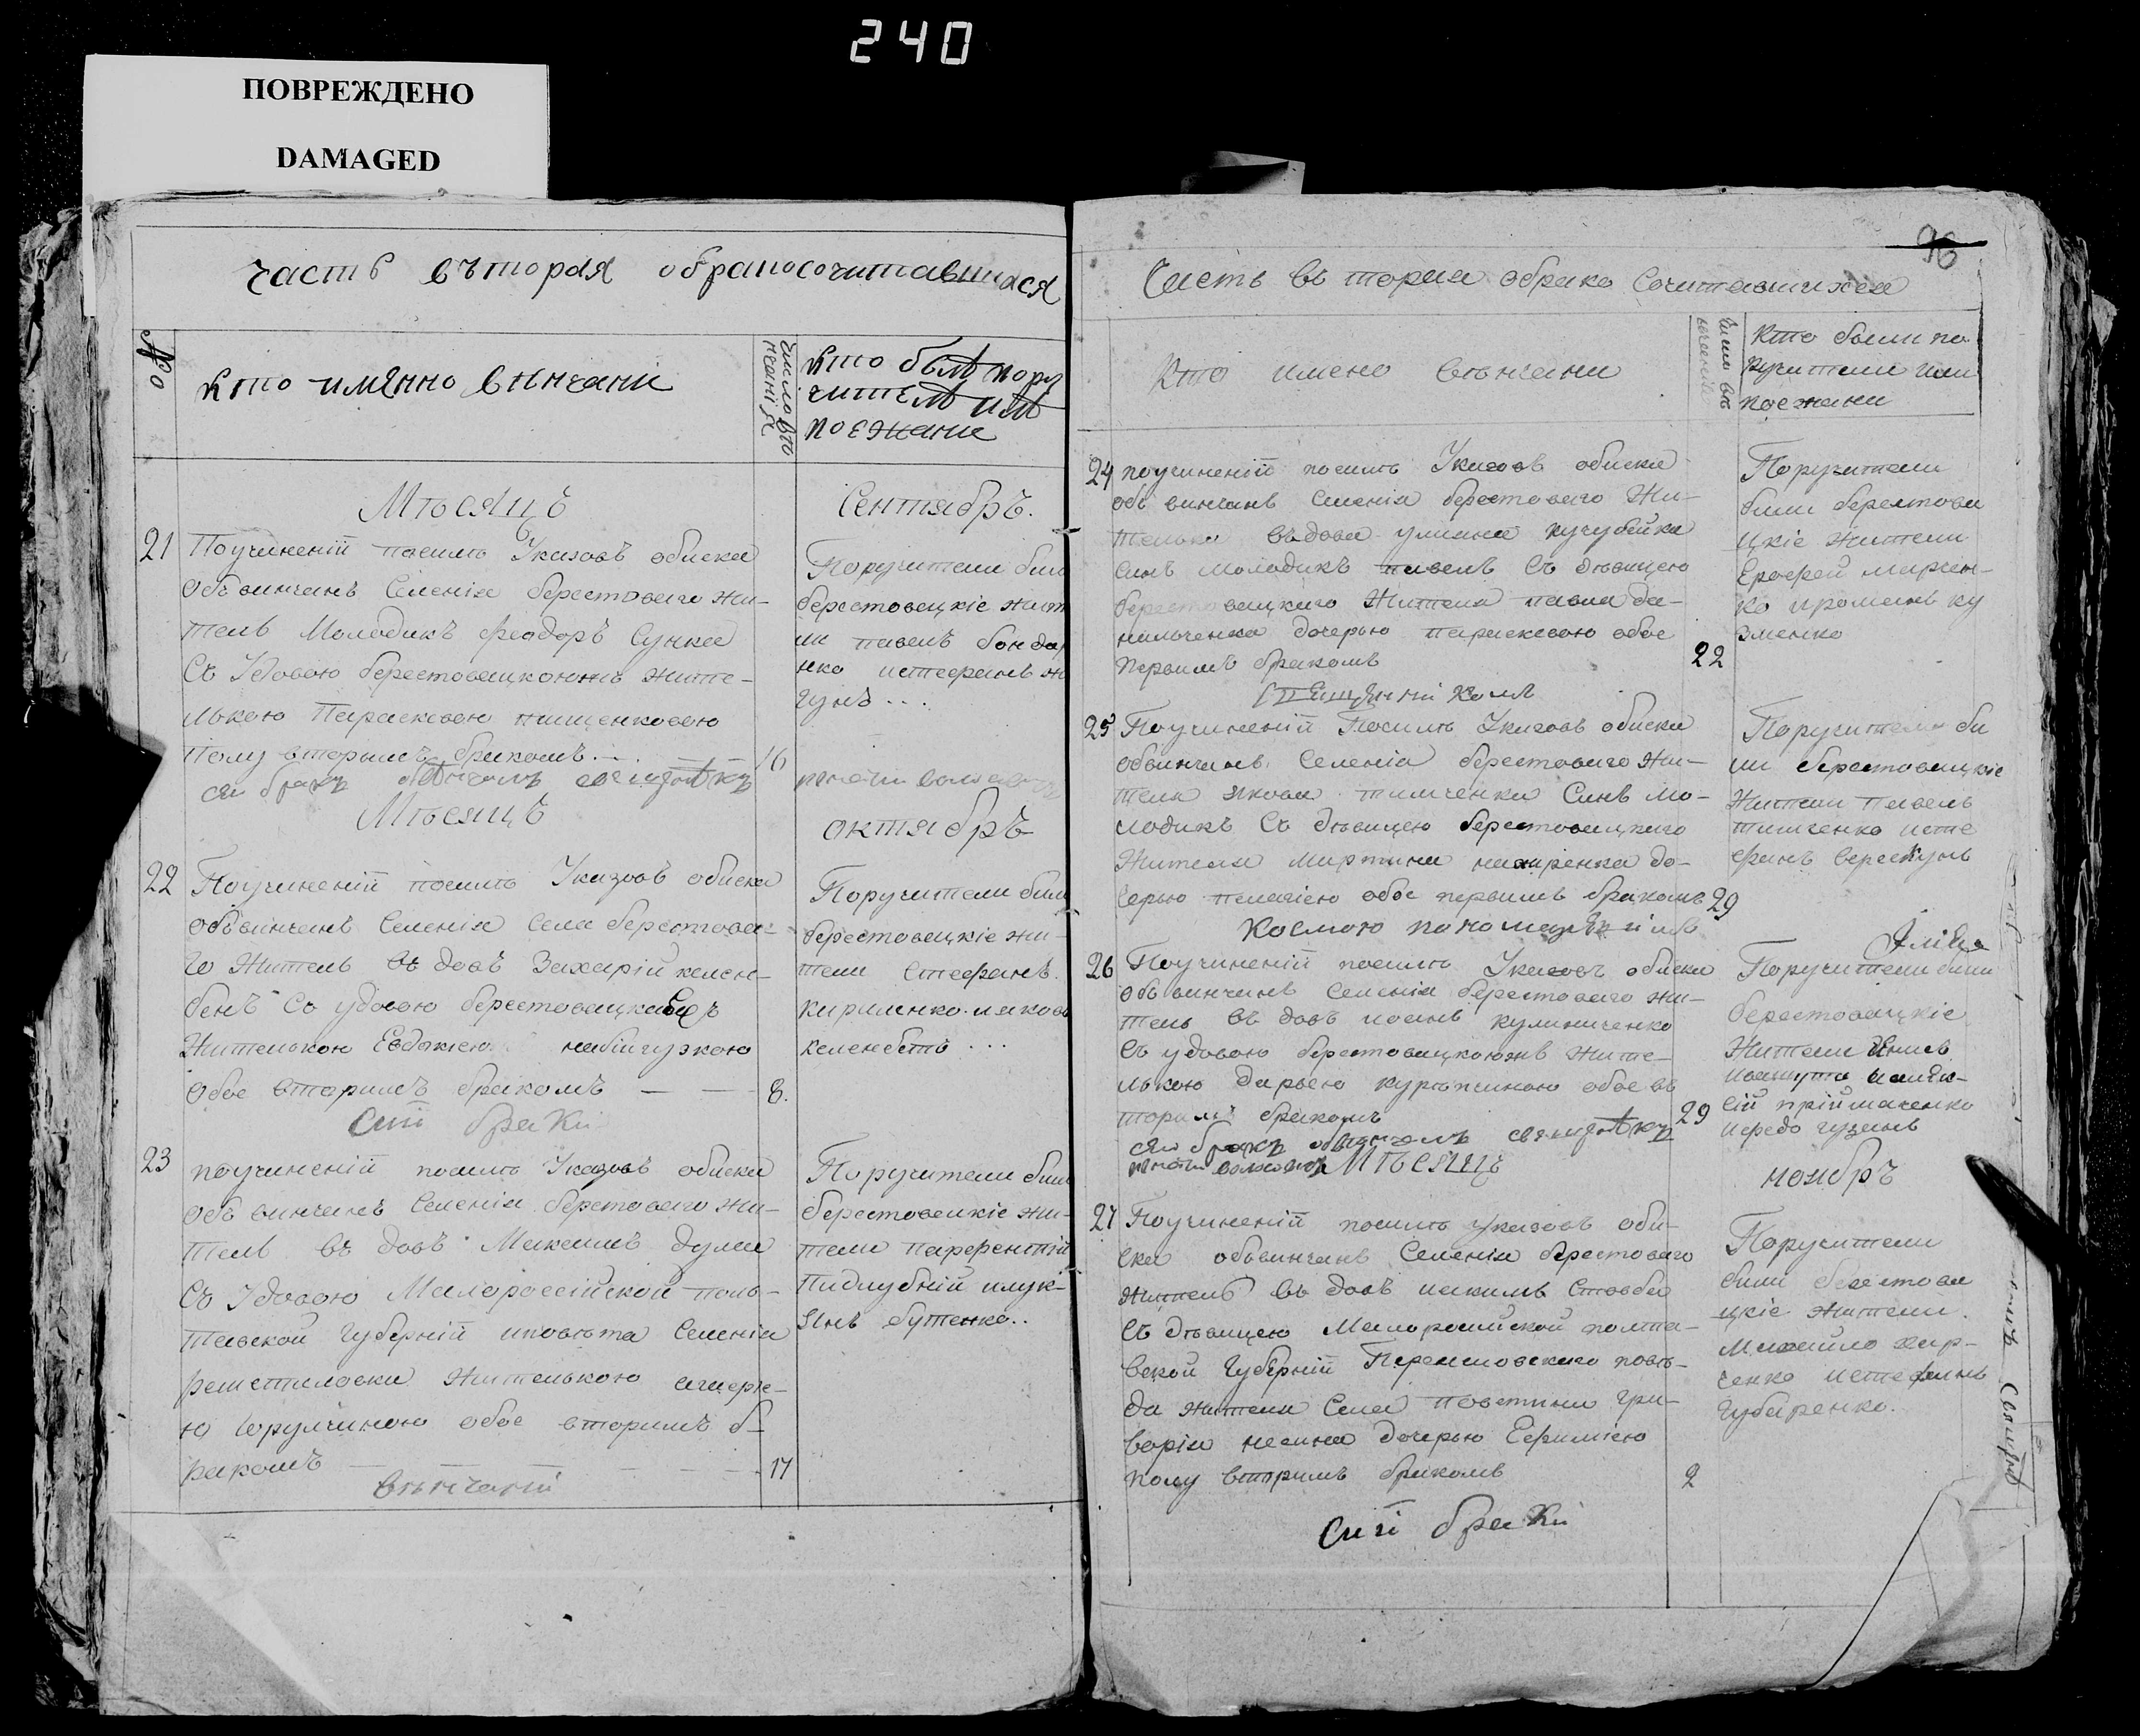 240
ПОВРЕЖДЕНО
DAMAGED
часть вторая обракосочитавшихся
№
кто имянно винчани
число вѣ
нчанія
кто былѣ пору
чителѣ илѣ
поезжани
Мѣсяцъ
Сентябръ.
21
Поучиненій посилѣ Указовъ обиска
объвинчанъ Селенія берестоваго жи-
тель Молодикъ феодоръ Сунка
Съ Удовою берестовицкоюжъ жите-
лькою Параскевою пищенковою
полу вторымъ бракомъ. . .
16
Поручители били
берестовецкіе жит
ли павелъ бонда
нко истефанъ
гунъ . . .
сей бракъ
Мѣсяцъ
октябръ
22
Поучиненій посилѣ Указовъ обиска
объвинчанъ Селенія Села берестова-
го житель вдовъ Захарій келем-
бетъ Съ удовою берестовицкою
жителькою Евдокіею
обое вторимъ бракомъ
8.
Поручители били
берестовецкіе жи-
тели Стефанъ
кириленко ияковъ
келембетъ . . .
Сии браки
23
поучиненій посилѣ Указовъ обиска
объвинчанъ Селенія берестоваго жи-
тель вдовъ Максимъ дума
Съ Удовою Малороссійской пол-
тавской губерній иповѣта Селенія
решетиловки жителькою
обое вторимъ б-
ракомъ
17
Поручители били
берестовецкіе жи-
тели парфентій
Пидлубній илук-
янъ бутенко. .
вѣнчаній
96
Часть вторая обрако Сочитавшихся
Кто имено вѣнчани
число вѣ
нчанія
Кто были по
ручители или
поезжани
24
поучиненій посилѣ Указовъ обиска
объвинчанъ Селенія берестоваго жи-
телька вдова уляна кучубейка
Синъ молодикъ павелъ Съ дѣвицею
берестовицкаго жителя павла да-
нильченка дочерью параскевою обое
первимъ бракомъ
22
Поручители
били берестови
цкіе жители
Ерофей марчен-
ко ироманъ ку
зменко
25
Поучиненій Посилѣ Указовъ обиска
объвинчанъ Селенія берестоваго жи-
теля якова тимченка Синъ мо-
лодикъ Съ дѣвицею берестовицкаго
жителя мартина назаренка до-
черью пелагіею обое первимъ бракомъ
29
Поручители би
ли берестовицкіе
жители павелъ
тимченко исте
фанъ верескунъ
Космою пономаремъ
26
Поучиненій посилѣ Указовъ обиска
объвинчанъ Селенія берестоваго жи-
тель вдовъ иоанъ кулиниченко
Съ удовою берестовицкоюжъ жите-
лькою дарьею обое в
торимъ бракомъ
29
Поручители били
берестовицкіе
жители
иалек-
сій пріймаченко
сей бракъ
Мѣсяцъ
ноябръ
27
Поучиненій посилѣ указовъ оби-
ска объвинчанъ Селенія берестоваго
житель вдовъ иякимъ Стовба
Съ дѣвицею Малоросийской полта-
вской губерній Переяславскаго повѣ-
да жителя Села
дочерью Ефиміею
полу вторимъ бракомъ
2
Поручители
били берестови
цкіе жители
Михайло хар-
ченко истефанъ
губаренко.
Сии браки